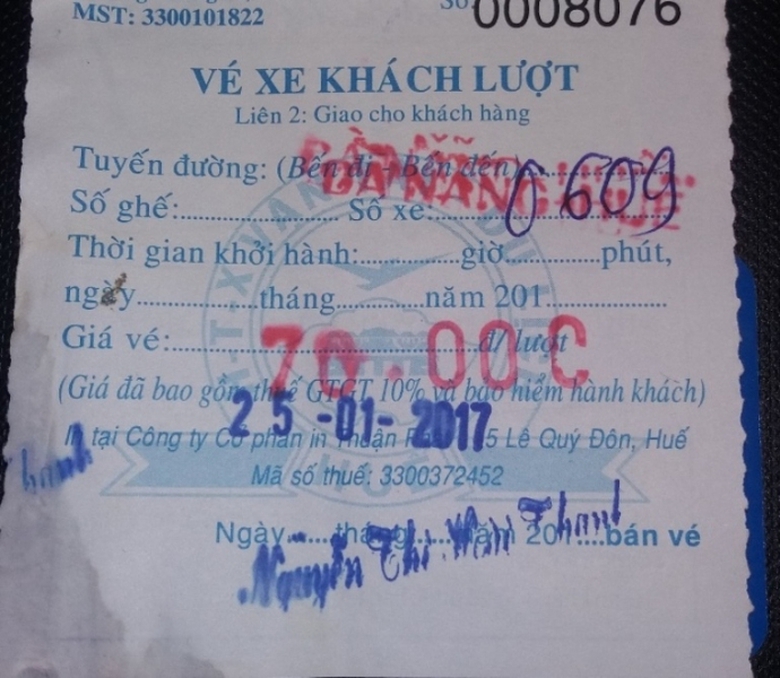 MST: 3300101822
Số: 0008076
VÉ XE KHÁCH LƯỢT
Liên 2: Giao cho khách hàng
Tuyến đường: (Bến đi - Bến đến)
ĐÀ NẴNG
Số ghế: Số xe: 6609
Thời gian khởi hành: giờ phút,
ngày tháng năm 201
Giá vé: 70.000 đ/ lượt
(Giá đã bao gồm thuế GTGT 10% và bảo hiểm hành khách)
25 -01- 2017
In tại Công ty Cổ phần in Thuận 5 Lê Quý Đôn, Huế
Mã số thuế: 3300372452
Ngày tháng năm 201 bán vé
Nguyễn Thị Thanh